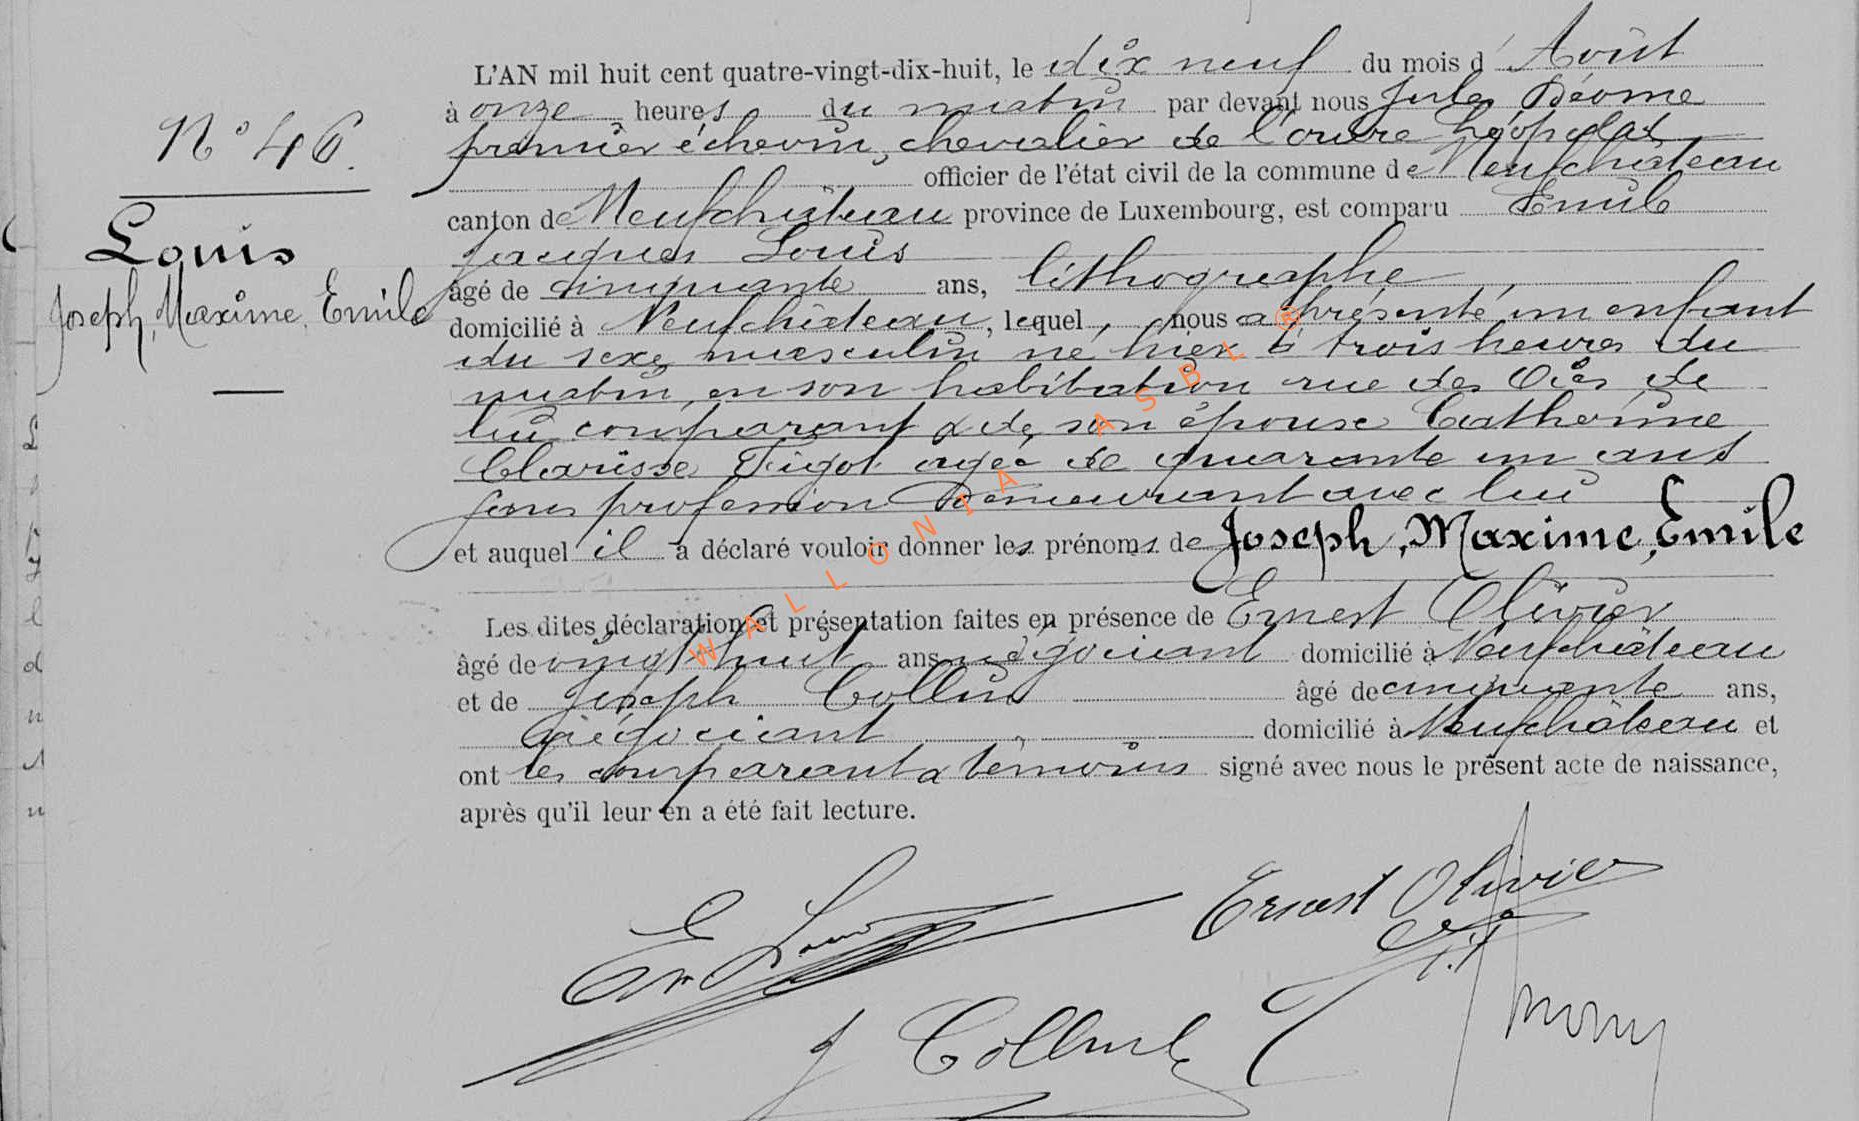 L'AN mil huit cent quatre-vingt-dix-huit, le dix neuf du mois d'Août
à onze heures du matin par devant nous Jules
N° 46.
premier échevin, chevalier de l'ordre Léopold
officier de l'état civil de la commune de Neufchâteau
canton de Neufchâteau province de Luxembourg, est comparu Emile
Louis
Jacques Louis
âgé de cinquante ans, lithographe
Joseph, Maxime, Emile
domicilié à Neufchâteau, lequel, nous a présenté un enfant
du sexe masculin né hier à trois heures du
matin, en son habitation rue des de
lui comparant & de son épouse Catherine
Clarisse agée de quarante un ans
sans profession demeurant avec lui
et auquel il a déclaré vouloir donner les prénoms de Joseph, Maxime, Emile
Les dites déclaration et présentation faites en présence de Ernest Olivier
âgé de vingt huit ans négociant domicilié à Neufchâteau
et de Joseph Collin âgé de cinquante ans,
négociant domicilié à Neufchâteau et
ont les comparant & témoins signé avec nous le présent acte de naissance,
après qu'il leur en a été fait lecture.
WALLONIA ASBL ®
Em Louis
Ernest Olivier
J Collin